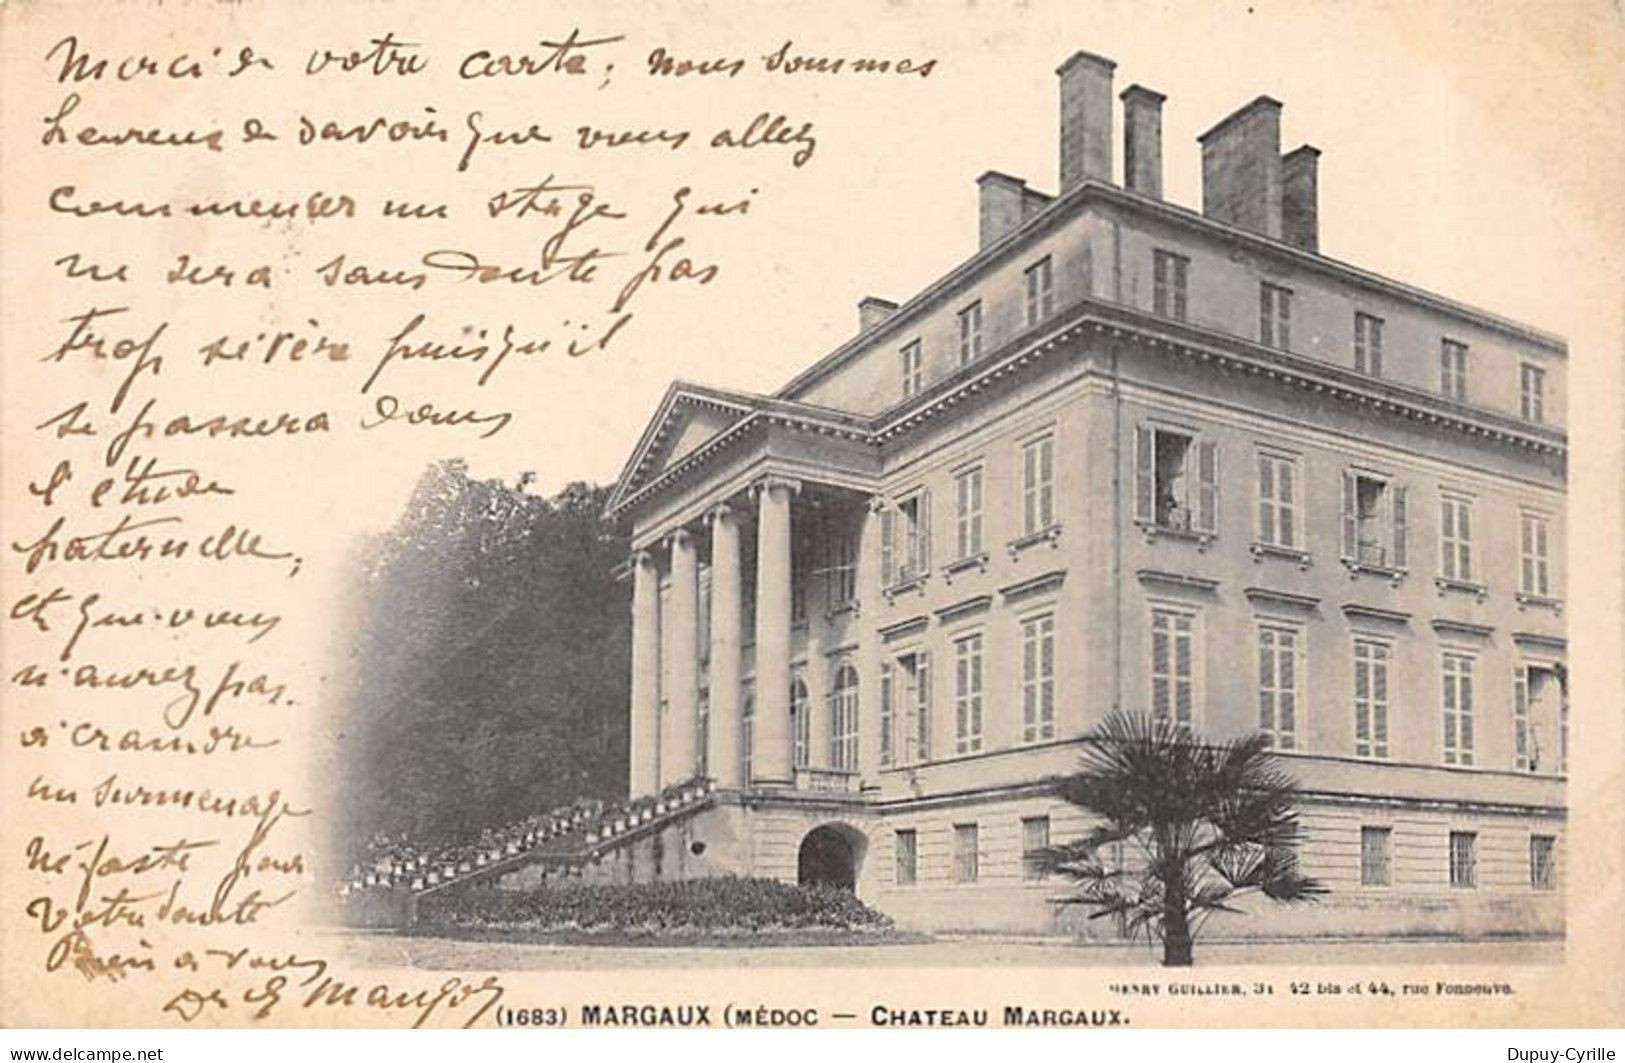 Merci de votre carte; nous sommes
heureux de savoir que vous allez
commencer un stage qui
ne sera sans doute pas
trop sévère puisqu'il
se passera dans
l'étude
paternelle,
et que vous
n'aurez pas
à craindre
un surmenage
néfaste pour
votre santé
Bien à vous
Dr
(1683) MARGAUX (MÉDOC — CHATEAU MARGAUX.
HENRY GUILLIER, 31 42 bis et 44, rue Fonneuve.
delcampe.net
Dupuy-Cyrille